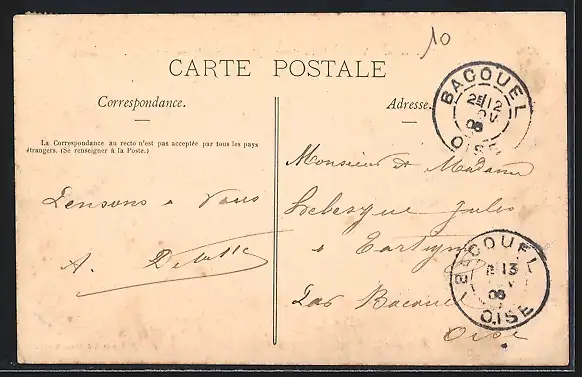 10
CARTE POSTALE
Correspondance.
Adresse.
La Correspondance au recto n'est pas acceptée par tous les pays
étrangers. (Se renseigner à la Poste.)
BACOUEL
12
08
OISE
Monsieur & Madame
Lebesgue Jules
à Tartigny
Par Bacouel
Oise
Pensons à Vous
A.
BACOUEL
13
08
OISE